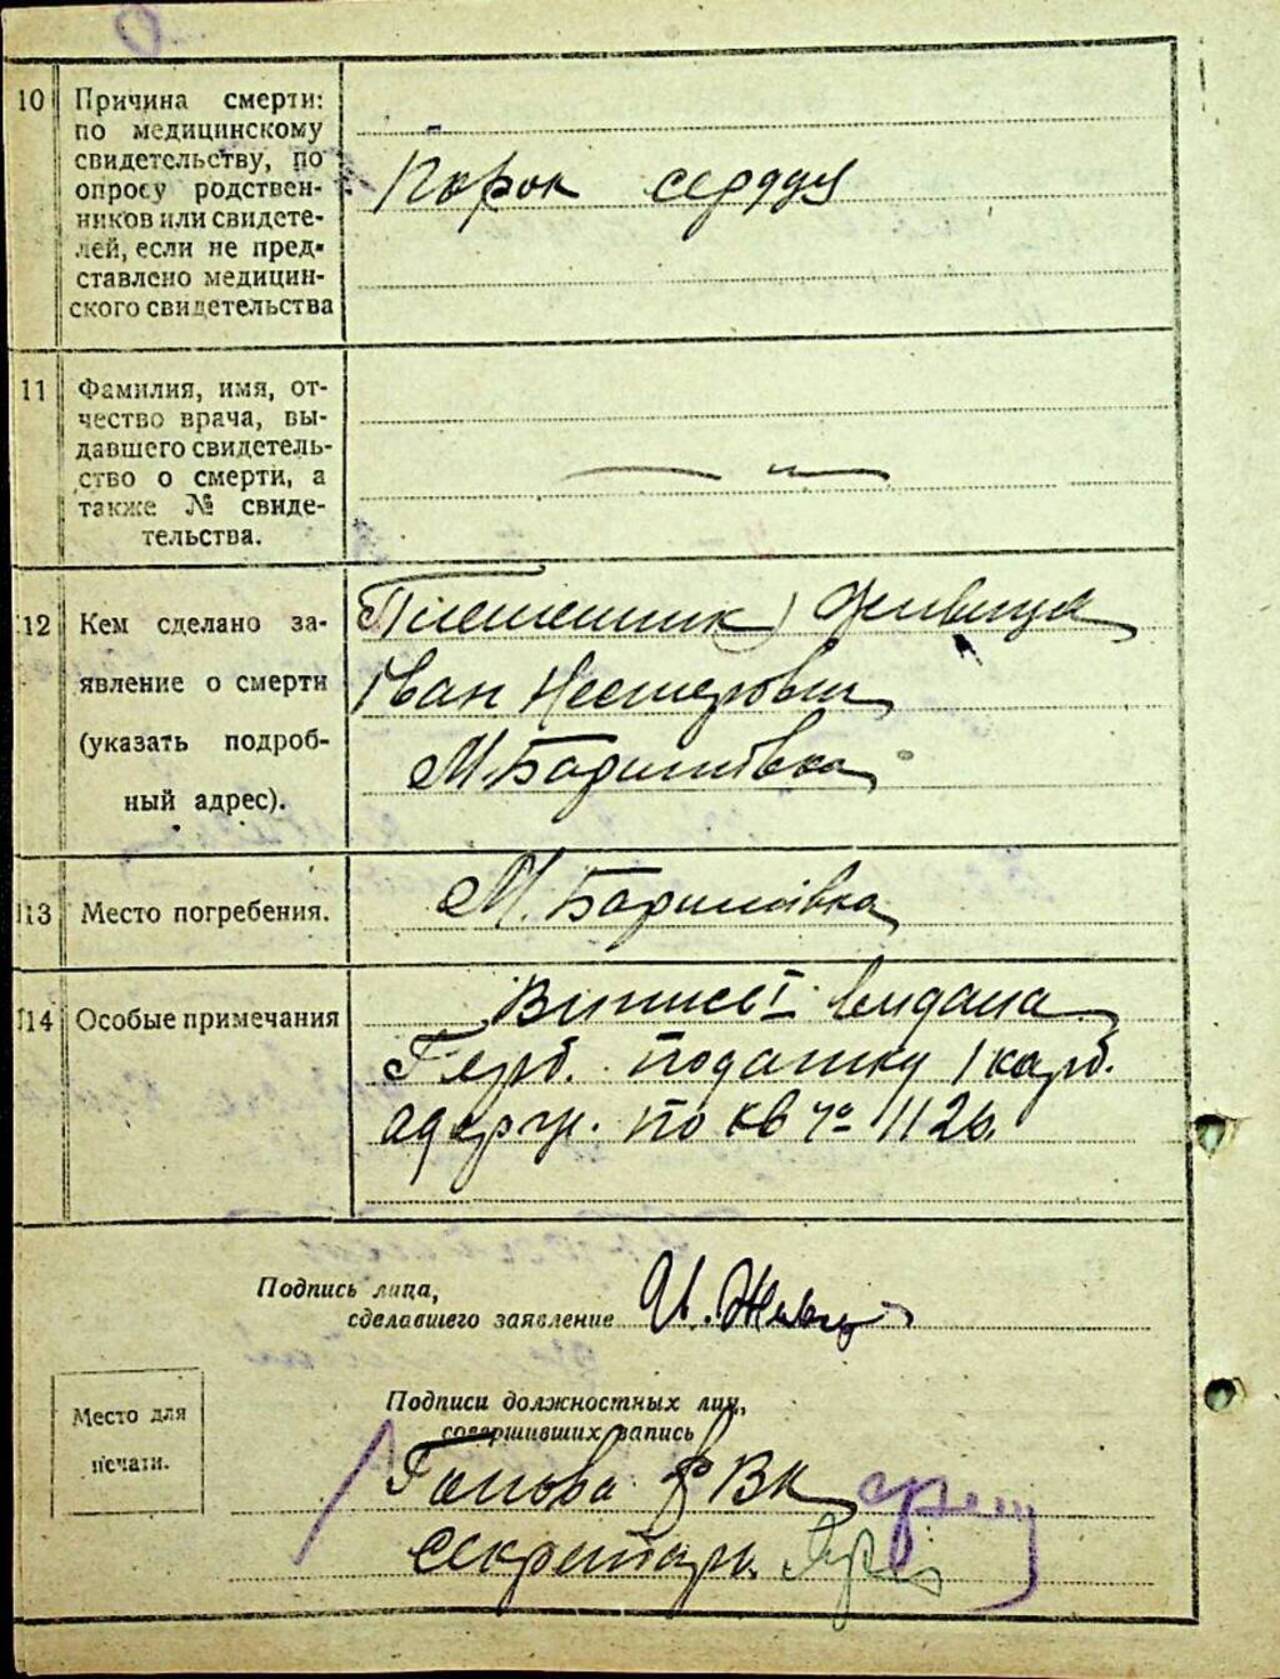 10 Причина смерти:
по медицинскому
свидетельству, по
опросу родствен-
ников или свидете-
лей, если не пред-
ставлено медицин-
ского свидетельства
Порок сердця
11 Фамилия, имя, от-
чество врача, вы-
давшего свидетель-
ство о смерти, а
также № свиде-
тельства.
12 Кем сделано за-
явление о смерти
(указать подроб-
ный адрес).
Племенник Живица
Іван Нестерович
М. Баришівка
13 Место погребения.
М. Баришівка
14 Особые примечания
Випись видана
Герб. податку 1 карб.
адерж. по кв № 1126.
Подпись лица,
сделавшего заявление И. Живиця
Место для
печати.
Подписи должностных лиц,
совершивших запись
Голова ВК
секретарь